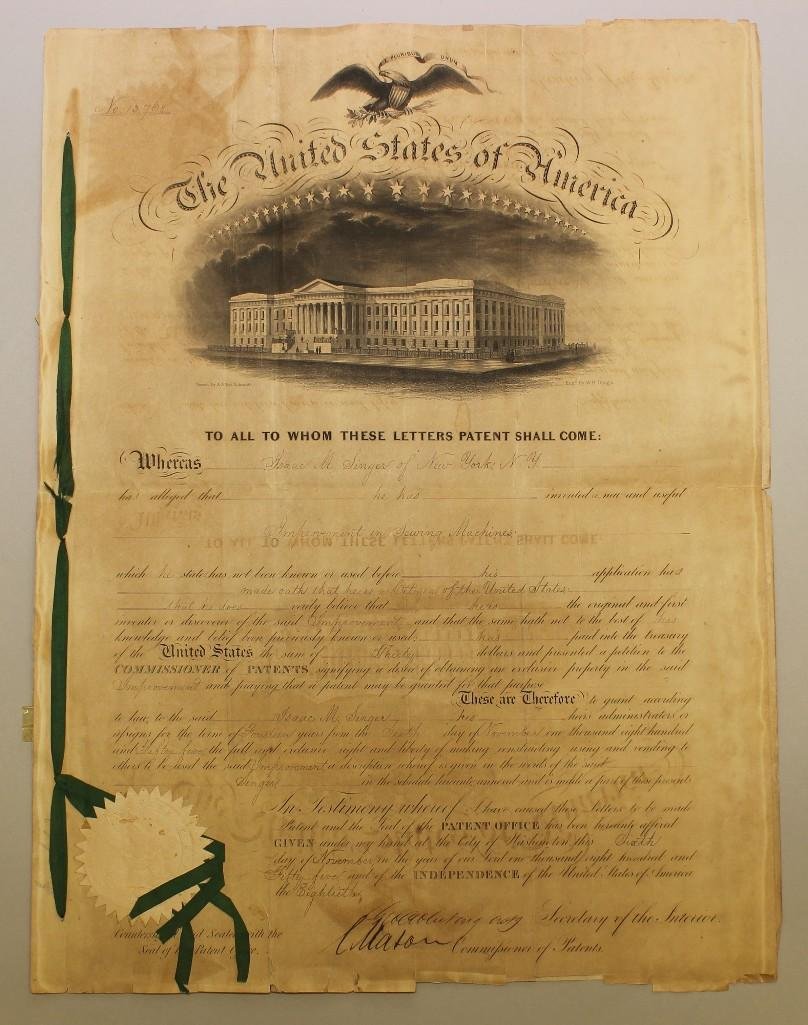 E PLURIBUS UNUM
No. 13,768
The United States of America
TO ALL TO WHOM THESE LETTERS PATENT SHALL COME:
Whereas Isaac M. Singer of New York, N.Y.
has alleged that he has invented a new and useful
Improvement in Sewing Machines
which he states has not been known or used before his application has
made oath that he is a citizen of the United States
that he does verily believe that he is the original and first
inventor or discoverer of the said Improvement and that the same hath not to the best of his
knowledge and belief been previously known or used; has paid into the treasury
of the United States the sum of Thirty dollars and presented a petition to the
COMMISSIONER of PATENTS signifying a desire of obtaining an exclusive property in the said
Improvement and praying that a patent may be granted for that purpose
These are Therefore to grant according
to law, to the said Isaac M. Singer, his heirs administrators or
assigns for the term of Fourteen years from the Sixth day of November one thousand eight hundred
and fifty five the full and exclusive right and liberty of making constructing using and vending to
others to be used the said Improvement a description whereof is given in the words of the said
Singer in the schedule hereunto annexed and is made a part of these presents
In Testimony whereof I have caused these Letters to be made
Patent and the Seal of the PATENT OFFICE has been hereunto affixed
GIVEN under my hand at the City of Washington this Sixth
day of November in the year of our Lord one thousand eight hundred and
Fifty five and of the INDEPENDENCE of the United States of America
the Eightieth
Secretary of the Interior.
Countersigned and Sealed with the
Seal of the Patent Office.
C Mason Commissioner of Patents.